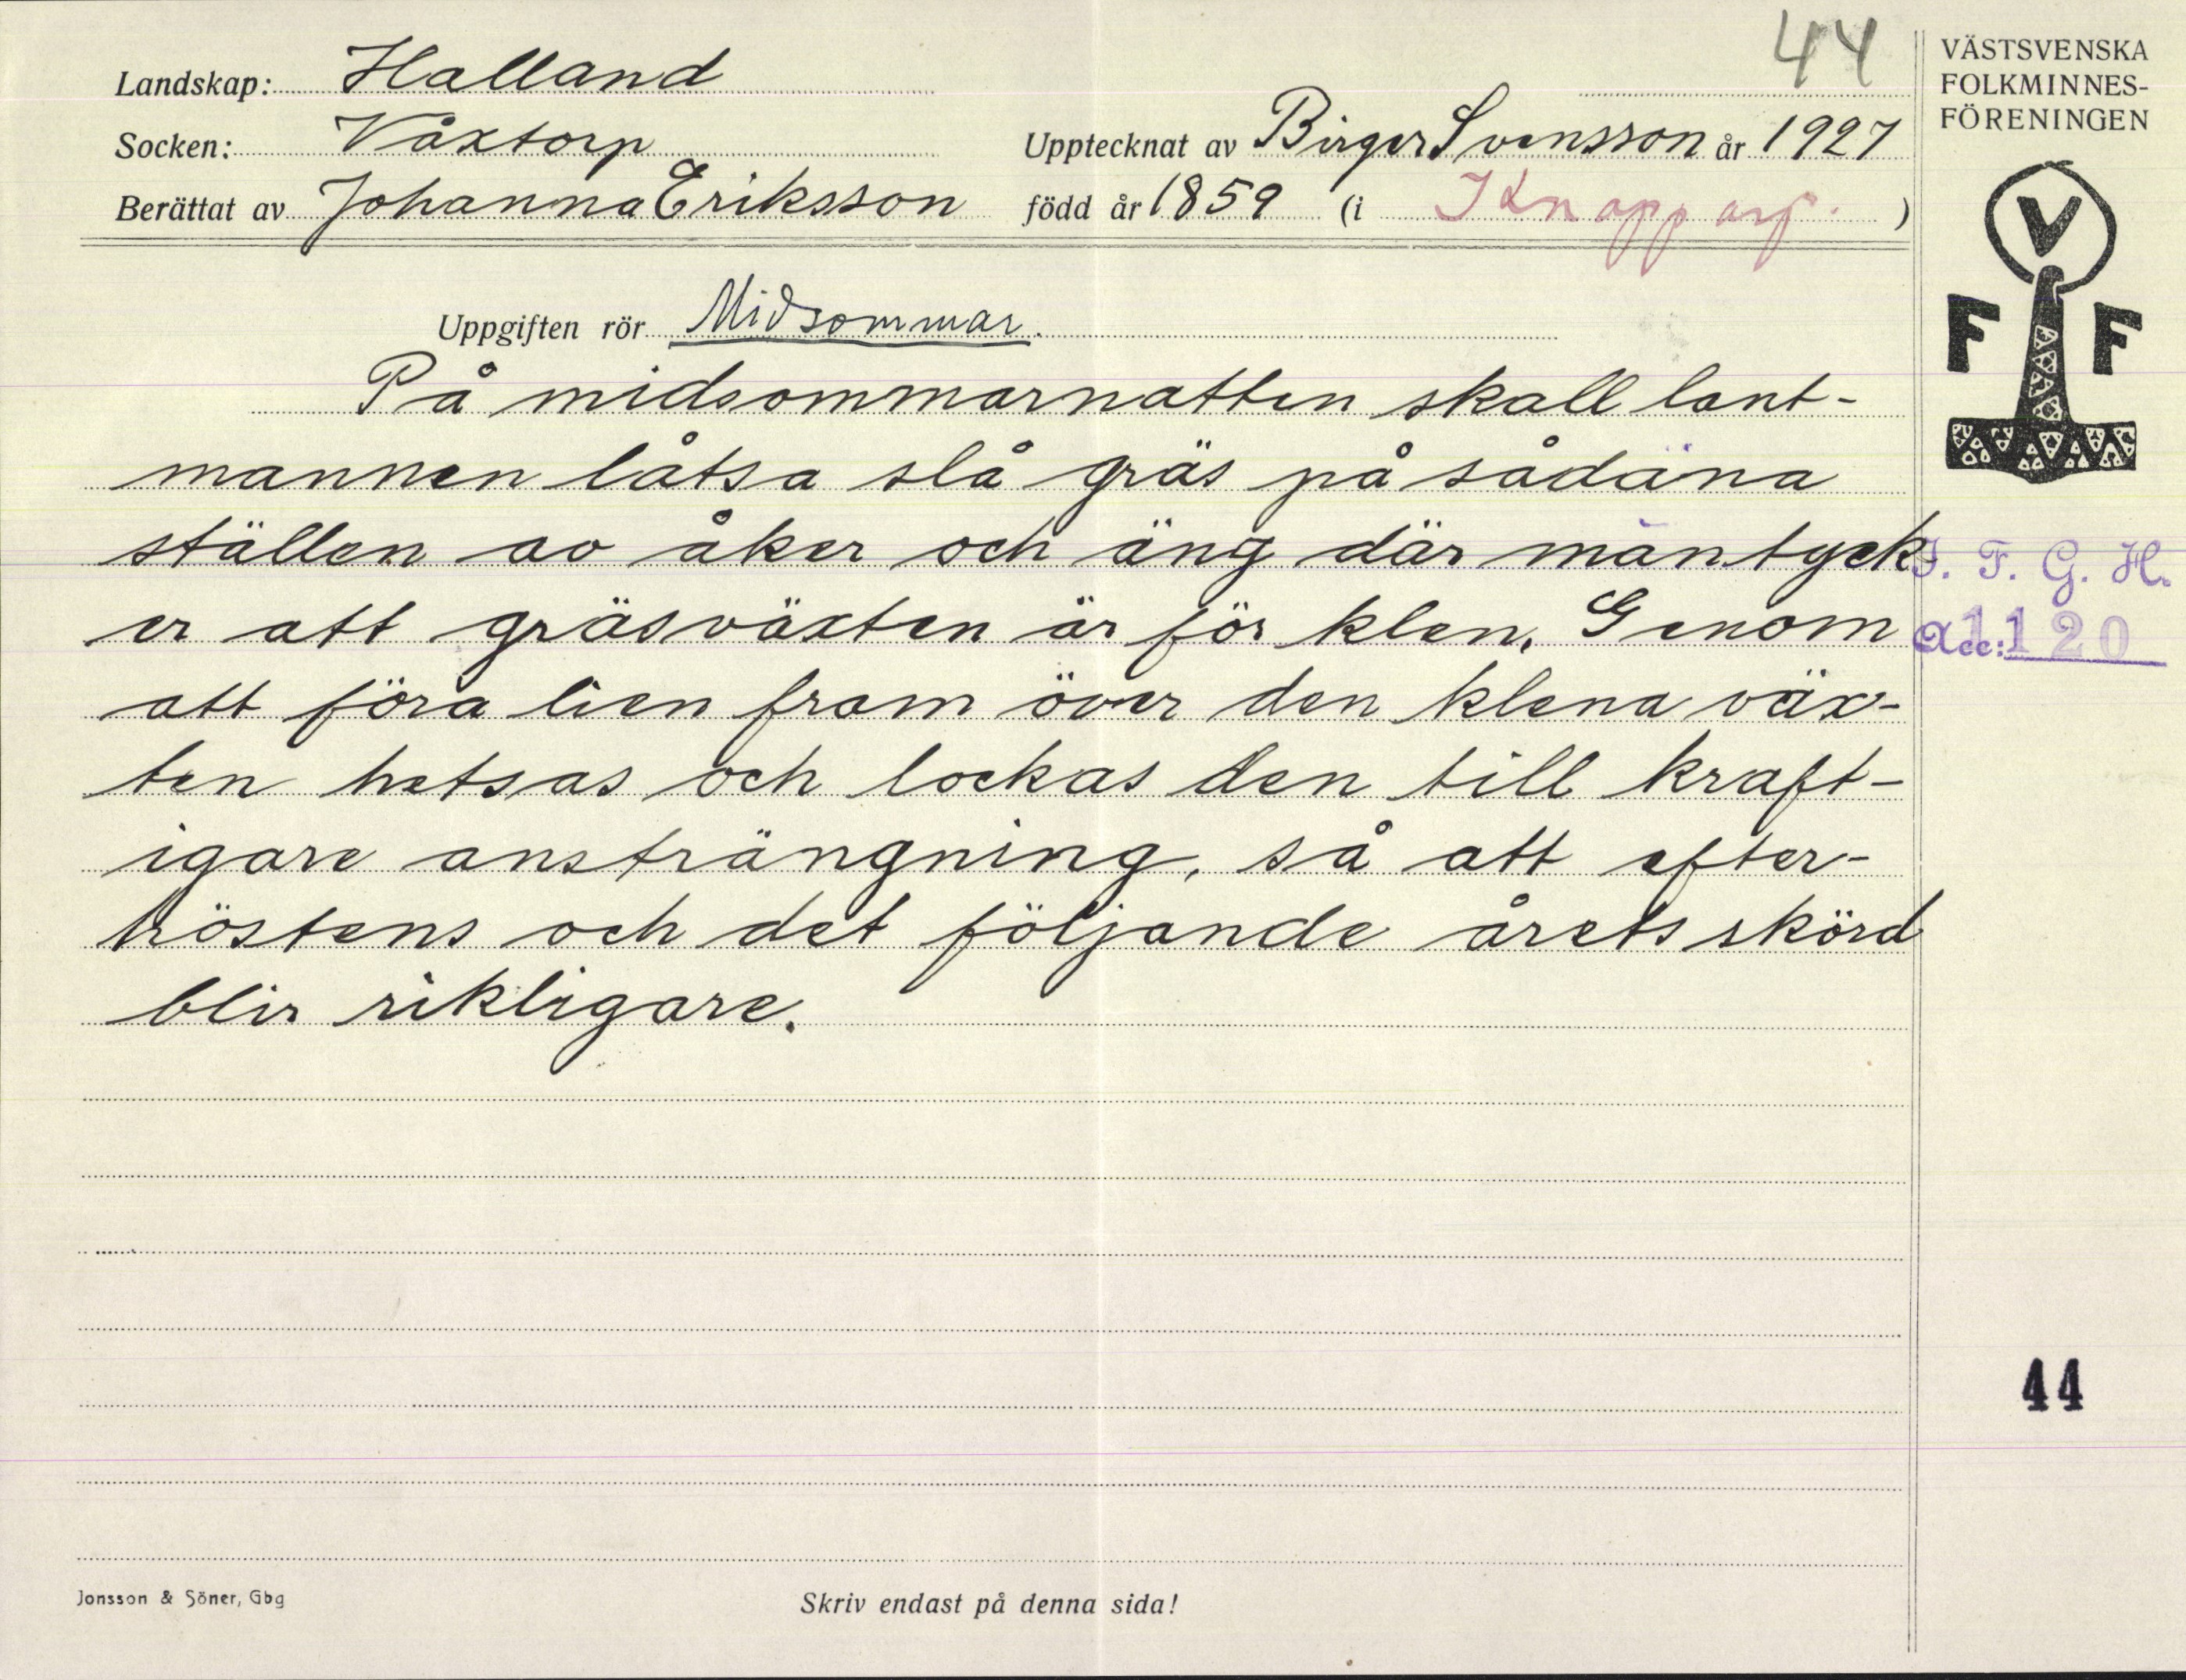 44
Landskap: Halland
Socken: Våxtorp
Upptecknat av Birger Svensson år 1927
Berättat av Johanna Eriksson född år 1859 (i Knapparp.)
Uppgiften rör Midsommar.
På midsommarnatten skall lant-
mannen låtsa slå gräs på sådana
ställen av åker och äng där man tyck
er att gräsväxten är för klen. Genom
att föra lien fram över den klena väx-
ten hetsas och lockas den till kraft-
igare ansträngning, så att efter-
höstens och det följande årets skörd
blir rikligare.
VÄSTSVENSKA
FOLKMINNES-
FÖRENINGEN
V
F F
I. F. G. H.
Acc: 1120
44
Jonsson & Söner, Gbg
Skriv endast på denna sida!